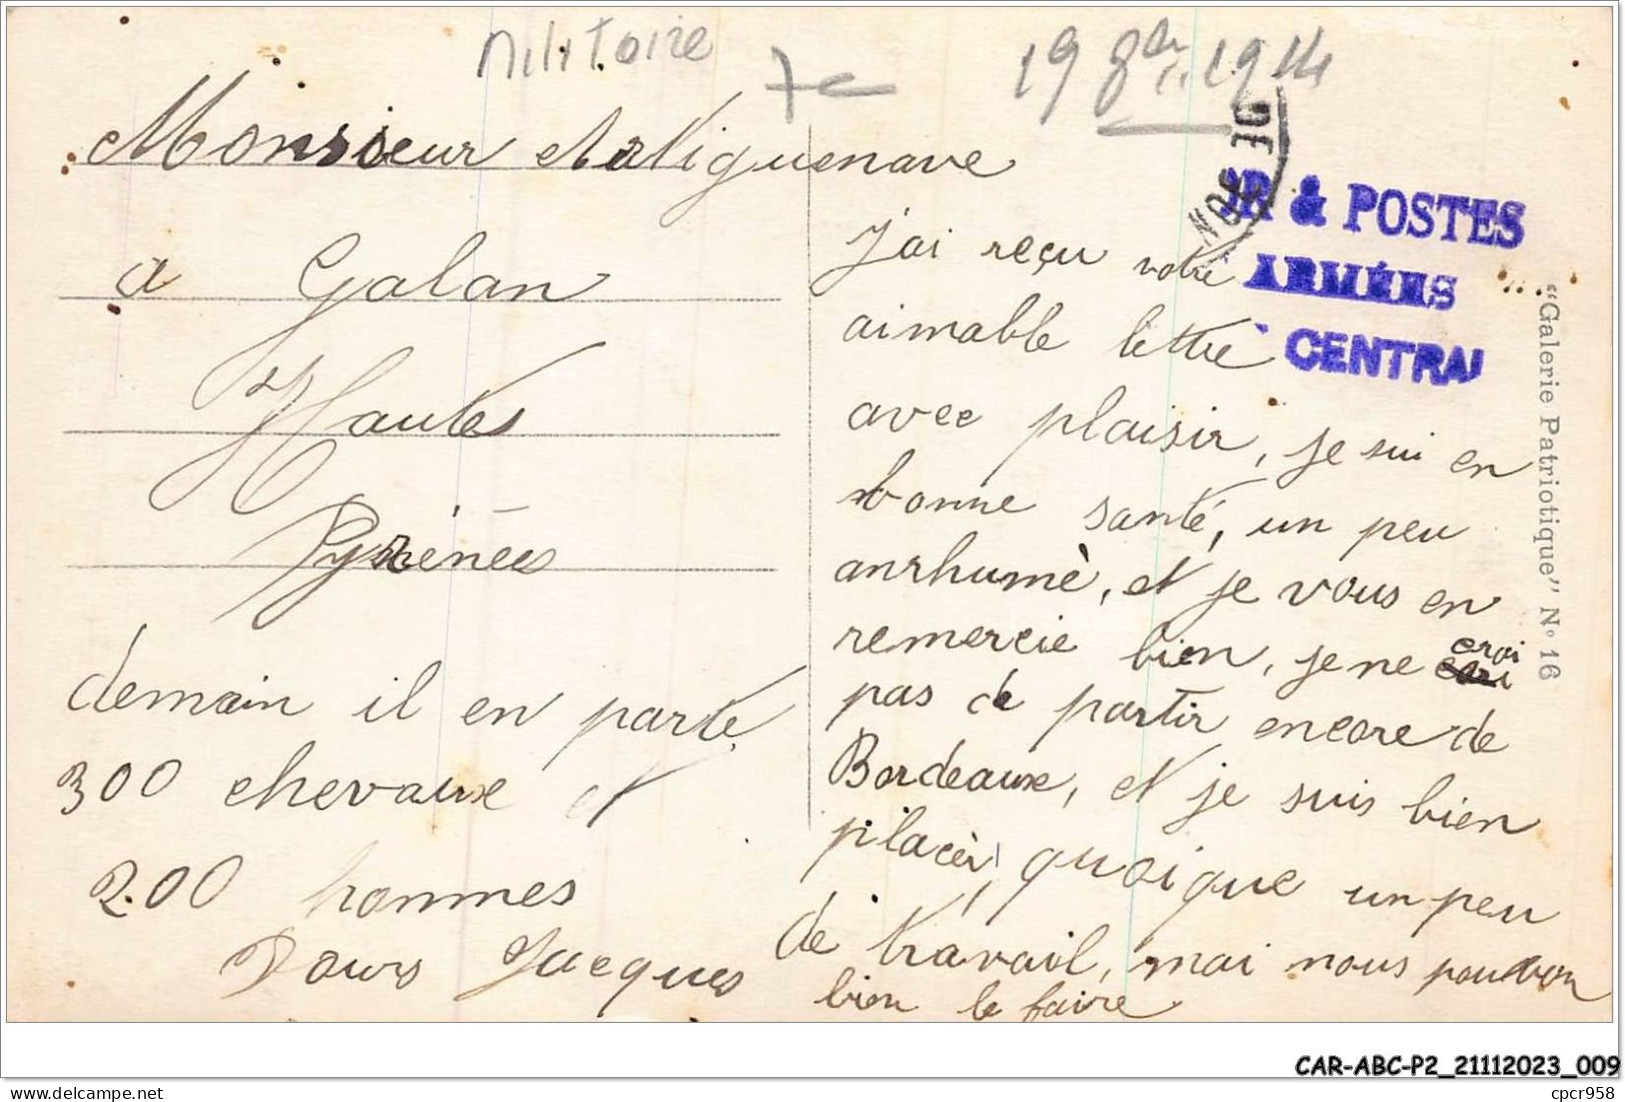 militaire
7c
19 8bre 1914
Monsieur Artiguenave
a Galan
Hautes
Pyrénées
demain il en parté
300 chevauxe et
200 hommes
Dours Jacques
j'ai reçu votre
aimable lettre
avec plaisir, je sui en
bonne santé, un peu
anrhumè, et je vous en
remercie bien, je ne croi
pas de partir encore de
Bordeauxe, et je suis bien
placèr, quoique un peu
de travail, mai nous pouvon
bien le faire
& POSTES
ARMÉES
CENTRAL
"Galerie Patriotique" No 16
CAR-ABC-P2_21112023_009
delcampe.net
cpcr958